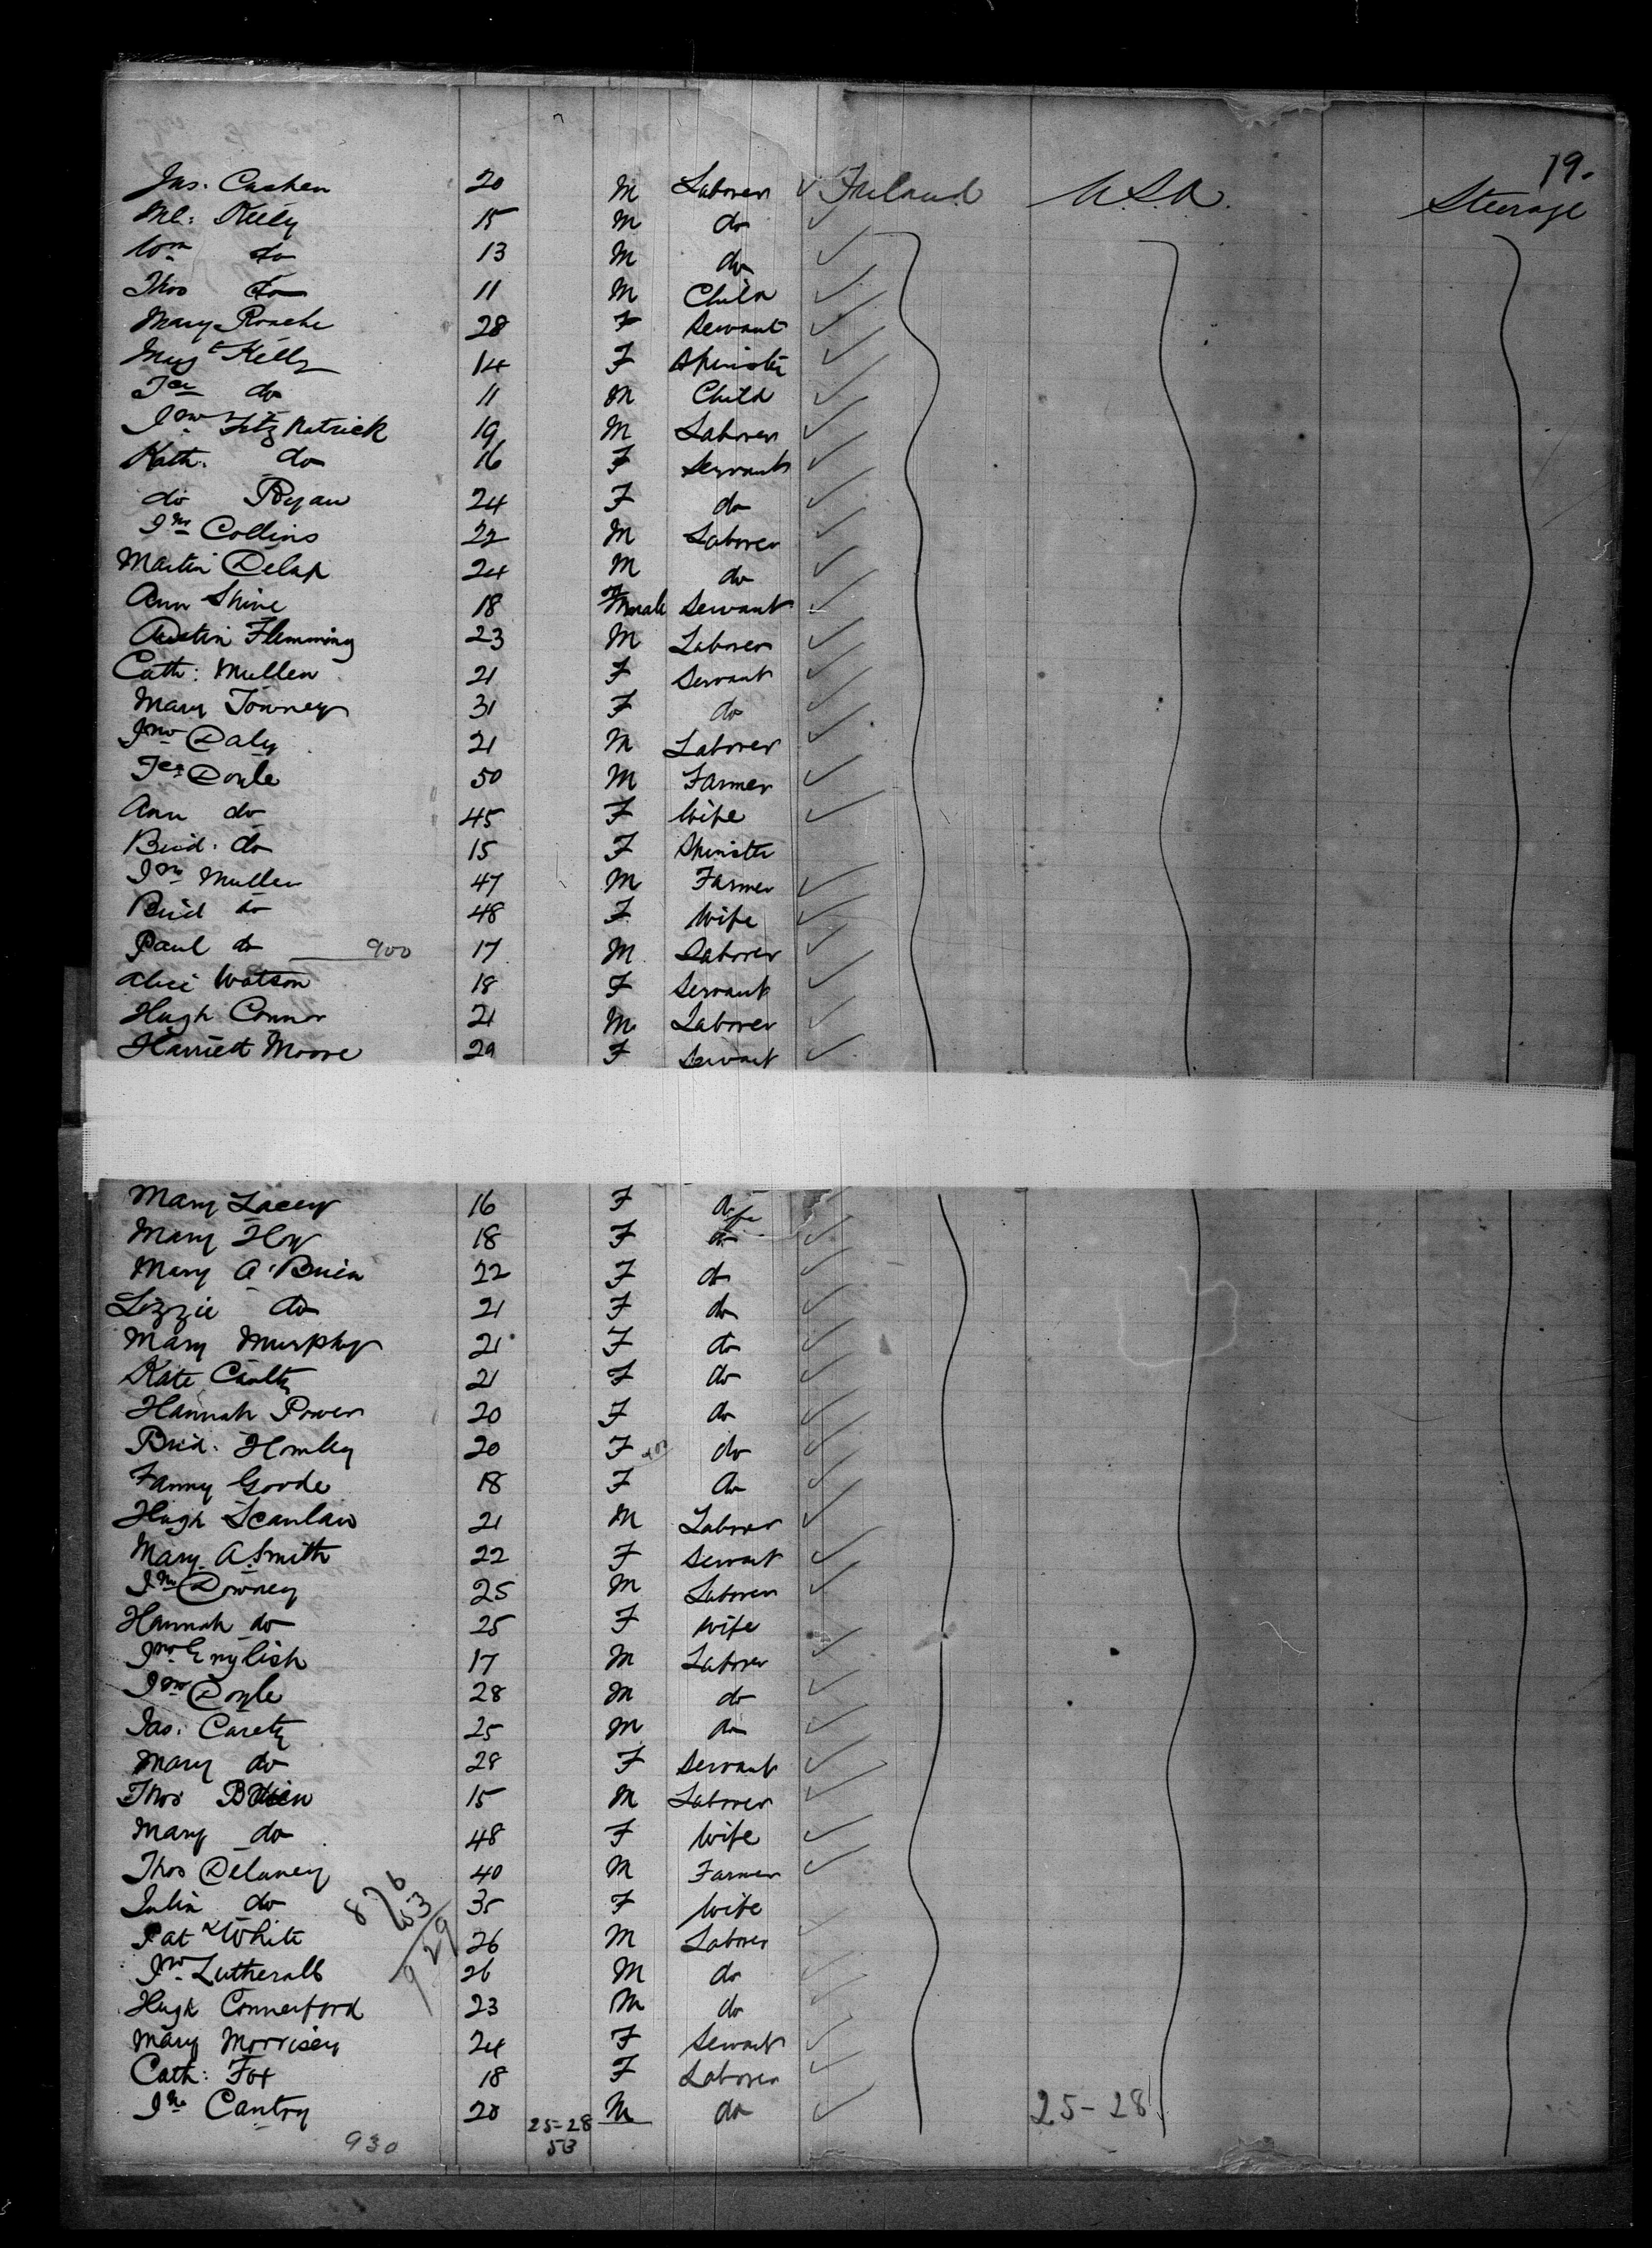 19.
Jas. Cashen 20 M Laborer Ireland U.S.A. Steerage
Ml: Kelly 15 M do
Wm do 13 M do
Thos do 11 M Child
Mary Roache 28 F Servant
Margt Kelly 14 F Spinster
Jas do 11 M Child
Jno Fitzpatrick 19 M Laborer
Kath: do 16 F Servant
do Ryan 24 F do
Jno Collins 22 M Laborer
Martin Delap 24 M do
Ann Shine 18 Female Servant
Austin Flemming 23 M Laborer
Cath: Mullen 21 F Servant
Mary Towney 31 F do
Jno Daly 21 M Laborer
Doyle 50 M Farmer
Ann do 45 F Wife
Brid. do 15 F Spinster
Jno Mullen 47 M Farmer
Brid do 48 F Wife
Paul do 900 17 M Laborer
Alice Watson 18 F Servant
Hugh Connor 21 M Laborer
Harriett Moore 29 F Servant
Mary Lacey 16 F do
Mary Hoy 18 F do
Mary O'Brien 22 F do
Lizzie do 21 F do
Mary Murphy 21 F do
Kate 21 F do
Hannah Power 20 F do
Brid. Homley 20 F do
Fanny Goode 18 F do
Hugh Scanlan 21 M Laborer
Mary A. Smith 22 F Servant
Jno Downey 25 M Laborer
Hannah do 25 F Wife
Jno English 17 M Laborer
Jno Doyle 28 M do
Jas. Carety 25 M do
Mary do 28 F Servant
Thos Brien 15 M Laborer
Mary do 48 F Wife
Thos Delaney 40 M Farmer
Julia do 35 F Wife
876
53
929
Patk White 26 M Laborer
Jno Lutherall 26 M do
Hugh Connerford 23 M do
Mary Morrisey 24 F Servant
Cath: Fox 18 F Laborer
Jno Cantry 20 M do
25-28 25-28
53
930